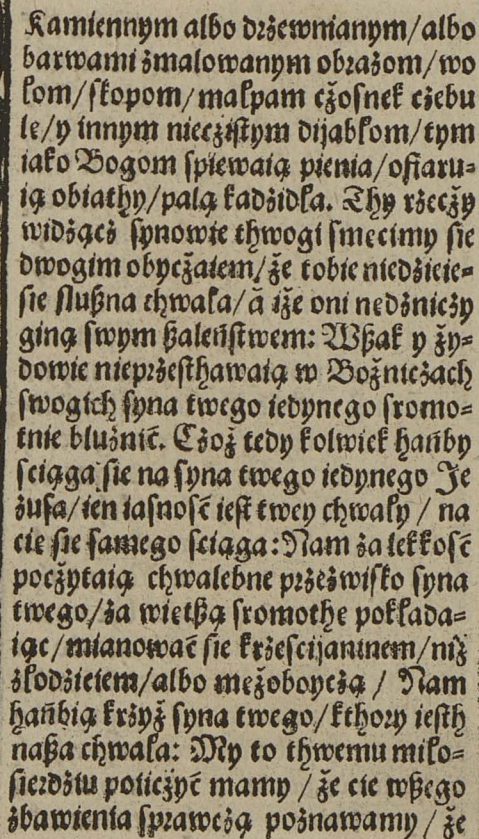 Kamiennym albo drzewnianym/albo
barwami zmalowanym obrazom/wo
łom/skopom/małpam czosnek czebu
le/y innym nieczistym dijabłom/tym
iako Bogom spiewaią pienia/ofiaru⸗
ią obiathy/palą kadzidła. Thy rzeczy
widząc synowie thwogi smecimy sie
dwogim obyczaiem/że tobie niedzieie⸗
sie slußna chwała/á iże oni nedznicży
giną swym ßaleństwem: Wßak y ży⸗
dowie nieprzesthawaią w Bożniczach
swogich syna twego iedynego sromo⸗
tnie bluźnić. Czoż tedy kolwiek hańby
sciąga sie na syna twego iedynego Je
zusa/ien iasność iest twey chwały / na
cie sie samego sciąga: Nam za lekkość
poczytaią chwalebne przezwisko syna
twego/za wietßą sromothe pokłada⸗
iąc/mianować sie krzescijaninem/niż
złodzieiem/albo mężoboyczą / Nam
hańbią krzyż syna twego/kthory iesth
naßa chwała: My to thwemu miło⸗
sierdziu policzyć mamy / że cie wßego
zbawienia sprawczą poznawamy / że